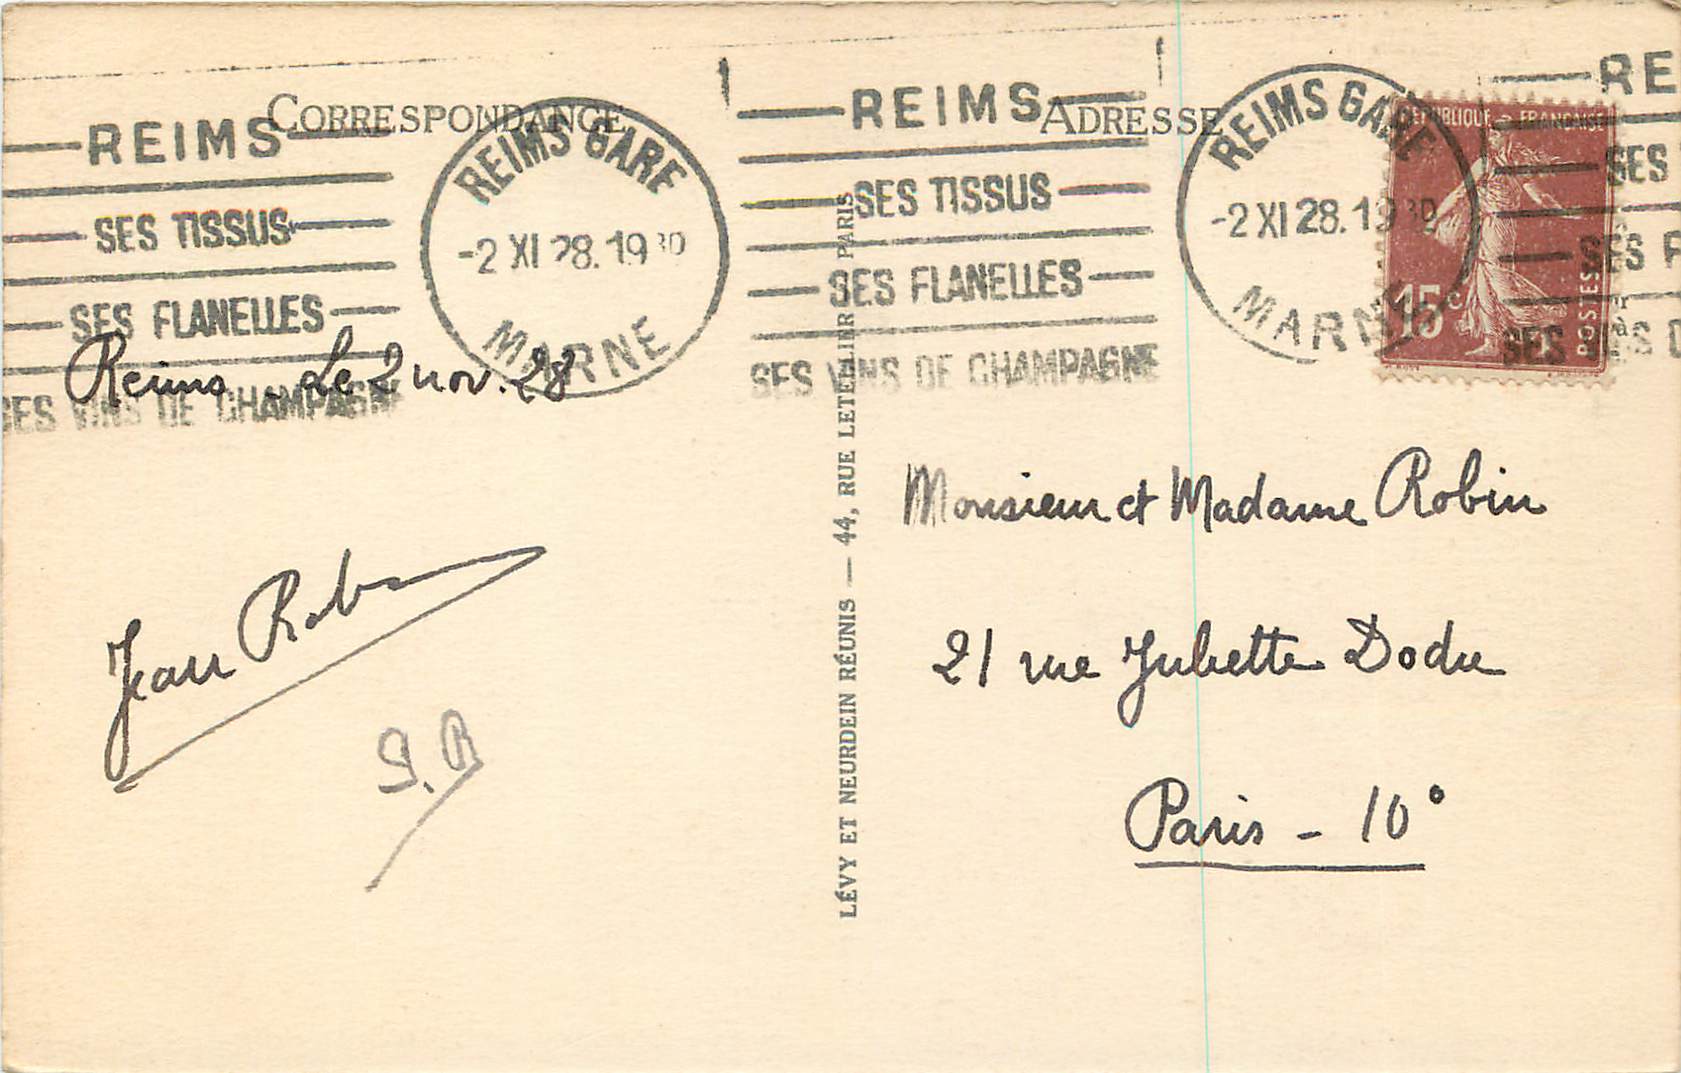 CORRESPONDANCE
ADRESSE
REIMS
SES TISSUS
SES FLANELLES
SES VINS DE CHAMPAGNE
REIMS GARE
-2 XI 28. 19 30
MARNE
REIMS
SES TISSUS
SES FLANELLES
SES VINS DE CHAMPAGNE
REIMS GARE
-2 XI 28. 19 30
MARNE
RÉPUBLIQUE FRANÇAISE
15c
POSTES
RE
SES
SES F
SES VINS D
Reims Le 2 nov. 28
Jean Robin
LÉVY ET NEURDEIN RÉUNIS — 44, RUE LETELLIER, PARIS
Monsieur et Madame Robin
21 rue Juliette Dodu
Paris - 10°